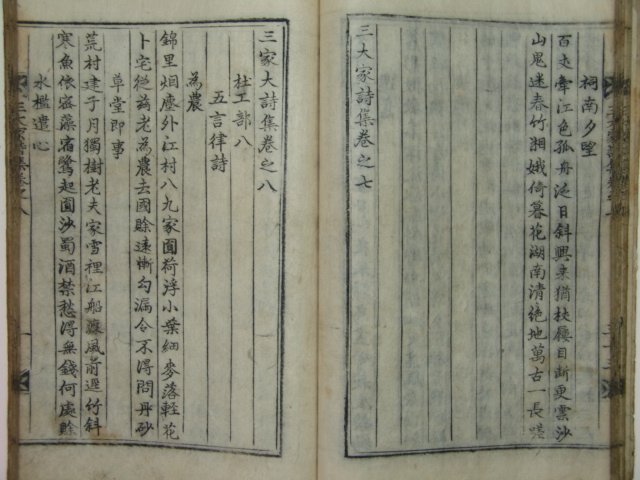 祠南夕望
百丈牽江色孤舟泛日斜興来猶杖屨目斷更雲沙
山鬼迷春竹湘娥倚暮花湖南清絶地萬古一長嗟
三大家詩集卷之七
三家大詩集卷之八
杜工部八
五言律詩
為農
錦里烟塵外江村八九家圓荷浮小葉細麥落輕花
卜宅從茲老為農去國賖遠慚勾漏令不得問丹砂
草堂即事
荒村建子月獨樹老夫家雪裡江船渡風前逕竹斜
寒魚依密藻宿鷺起圓沙蜀酒禁愁得無錢何處賖
水檻遣心
三大家詩集卷之八